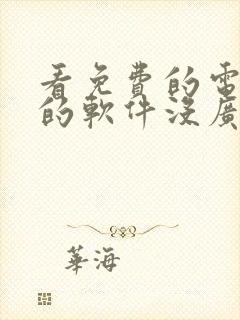 看免費的電
的軟件沒廣
華海